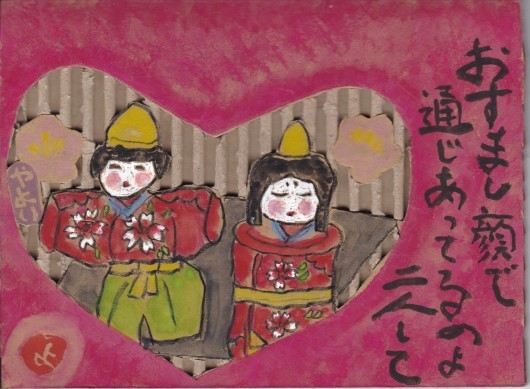 おすまし顔で
通じあってるのよ
二人して
やよい